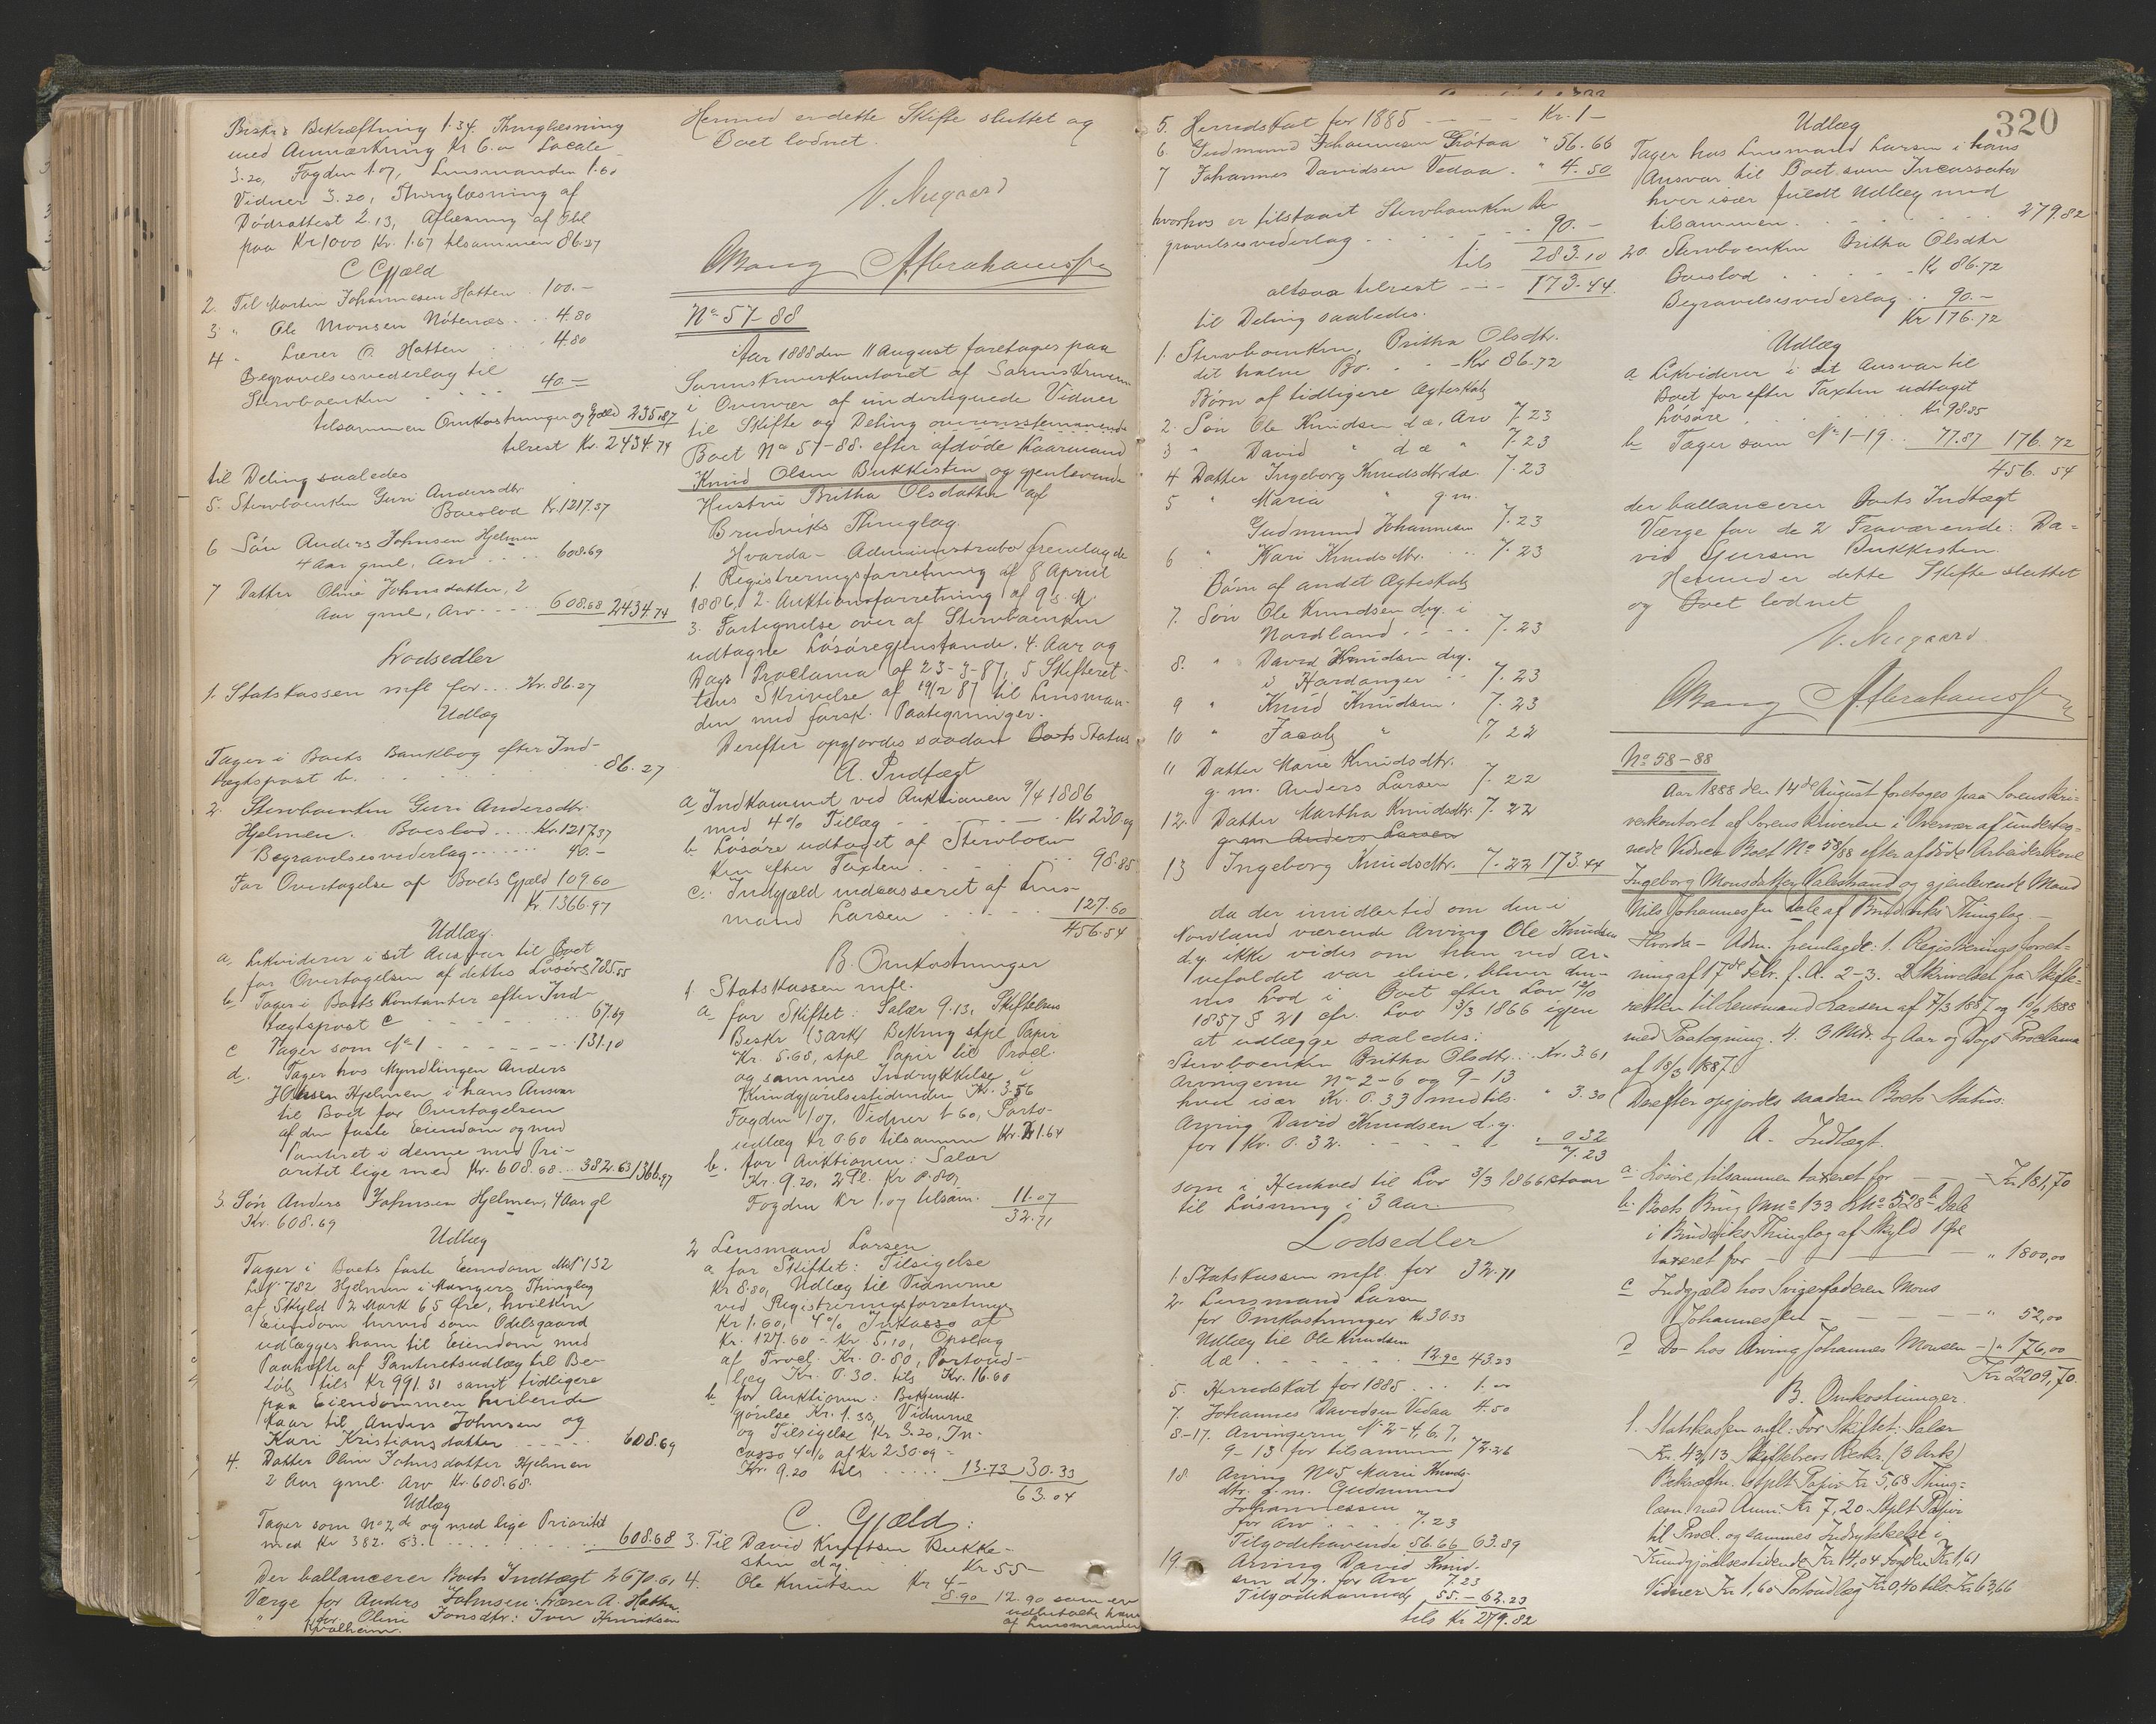 Beskr. Bekræftning 1.34. Thinglæsning
med Anmærkning Kr 6.00 Locale
3.20, Fogden 1.07, Lensmanden 1.60
Vidner 3.20, Thinglæsning af
Dødsattest 2.13, Aflæsning af Obl
paa Kr 1000 Kr. 1.67 tilsammen 86.27
C Gjæld
2. Til Morten Johannesen Hatten . 100.-
3 " Ole Monsen Nötenæs . . 4.80
4 " Lærer O. Hatten . . 4.80
Begravelsesvederlag til
Stervboenken . . . . 40.-
tilsammen Omkostninger og Gjæld 235.87
tilrest Kr. 2434.74
til Deling saaledes
5. Stervboenken Guri Andersdtr
Boeslod Kr. 1217.37
6 Sön Anders Johnsen Hjelmen
4 Aar gml, Arv . . . 608.69
7 Datter Oline Johnsdatter, 2
Aar gml, Arv . . . 608.68 2434.74
Lodsedler
1. Statskassen mfl for . . . Kr. 86.27
Udlæg
Tager i Boets Bankbog efter Ind-
tægtspost b. . . . . . 86.27
2. Stervboenken Guri Andersdtr.
Hjelmen. Boeslod . . . . Kr. 1217.37
Begravelsesvederlag . . . . 40.-
For Overtagelse af Boets Gjæld 109.60
Kr. 1366.97
Udlæg.
a, Likviderer i sit Ansvar til Boet
for Overtagelsen af dettes Lösöre 785.55
b. Tager i Boets Kontanter efter Ind-
tægtspost c . . . . . . 67.69
c Tager som No 1 . . . . . 131.10
d. Tager hos Myndlingen Anders
Johnsen Hjelmen i hans Ansvar
til Boet for Overtagelsen
af den faste Eiendom og med
Panteret i denne med Pri-
oritet lige med Kr. 608.68 . . 382.63 1366.97
3. Sön Anders Johnsen Hjelmen, 4 Aar gl
Kr. 608.69
Udlæg
Tager i Boets faste Eiendom MNo 132
LNo 782 Hjelmen i Mangers Thinglag
af Skyld 2 Mark 65 Øre, hvilken
Eiendom herved som Odelsgaard
udlægges ham til Eiendom med
Paahefte af Panteretsudlæg til Be-
löb tils Kr 991.31 samt tidligere
paa Eiendommen hvilende
Kaar til Anders Johnsen og
Kari Kristiansdatter . . . . . 608.69
4. Datter Oline Johnsdatter Hjelmen
2 Aar gml. Arv Kr. 608.68.
Udlæg
Tager som No 2 d. og med lige Prioritet
med Kr 382.63 . . . . . . 608.68
Der ballancerer Boets Indtægt 2670.61
Værge for Anders Johnsen: Lærer A. Hatten
" for Oline Jonsdtr: Iver Henriksen
Kvalheim.
Hermed er dette Skifte sluttet og
Boet lodnet.
V. Neegaard
OBang A. Abrahamsen
No 57-88
Aar 1888 den 11 August foretages paa
Sorenskriverkontoret af Sorenskriveren
i Overvær af undertegnede Vidner
til Skifte og Deling overensstemmende
Boet No 57-88. efter afdöde Kaarmand
Knud Olsen Bukkesten og gjenlevende
Hustru Britha Olsdatter af
Brudviks Thinglag.
Hvorda - Administrator fremlagde
1. Registreringsforretning af 8 April
1886, 2. Auktionsforretning af 9 s. M.
3. Fortegnelse over af Stervboenken
udtagne Lösöregjenstande. 4. Aar og
Dags Proclama af 23-3-87, 5 Skifteret-
tens Skrivelse af 19/2 87 til Lensman-
den med forsk. Paategninger.
Derefter opgjordes saadan Boets Status
A. Indtægt
a, Indkommet ved Auktionen 9/4 1886
med 4% Tillæg . . . . Kr 230.09
b Lösöre udtaget af Stervboen-
ken efter Taxten . . . . . 98.85
c. Indgjæld indcasseret af Lens-
mand Larsen . . . . . 127.60
456.54
B. Omkostninger
1. Statskassen mfl.
a for Skiftet: Salær 9.13, Skiftebrevs
Beskr (3 Ark) Bekrng stpl Papir
Kr. 5.68, stpl. Papir til Procl.
og sammes Indrykkelse i
Kundgjörelsestidenden Kr. 3.56
Fogden 1.07, Vidner 1.60, Porto-
udlæg Kr 0.60 tilsammen Kr. 21.64
b. for Auktionen: Salær
Kr. 9.20, 2 Pl. Kr 0.80,
Fogden Kr 1.07 tilsam. 11.07
32.71
2 Lensmand Larsen
a for Skiftet: Tilsigelse
Kr 8.80, Udlæg til Vidnerne
ved Registreringsforretningen
Kr 1.60, 4% Inkasso af
Kr. 127.60 = Kr. 5.10, Opslag
af Procl. Kr. 0.80, Portoud-
læg Kr. 0.30. tils Kr. 16.60
b for Auktionen: Bekjendt-
gjörelse Kr. 1.33, Vidnerne
og Tilsigelse Kr 3.20, In-
casso 4% af Kr 230.09 =
Kr. 9.20 tils . . . . . 13.73 30.33
63.04
C. Gjæld:
3. Til David Knutsen Bukke-
sten d.y. . . Kr 55-
4. Ole Knutsen Kr 4.-
8.90 12.90 som er
udbetalte ham
af Lensmanden
5. Herredskat for 1885 - - - Kr. 1-
6. Gudmund Johannesen Grötaa " 56.66
7 Johannes Davidsen Vedaa . " 4.50
hvorhos er tilstaaet Stervboenken Be-
gravelsesvederlag . . . . . . 90.-
tils 283.10
altsaa tilrest - - - 173.44
til Deling saaledes.
1. Stervboenken, Britha Olsdtr.
det halve Bo. . . - Kr 86.72
Börn af tidligere Ægteskab
2. Sön Ole Knudsen d.æ. Arv 7.23
3 " David " d.æ " 7.23
4 Datter Ingeborg Knudsdtr d.æ. 7.23
5 " Maria " g.m.
Gudmund Johannesen 7.23
6 " Kari Knudsdtr. . . . 7.23
Börn af andet Ægteskab
7. Sön Ole Knudsen d.y. i
Nordland . . . . 7.23
8. " David Knudsen d.y.
i Hardanger . . 7.23
9 " Knud Knudsen . 7.23
10 " Jacob " 7.22
11 Datter Marie Knudsdtr.
g.m. Anders Larsen 7.22
12. Datter Martha Knudsdtr. 7.22
g.m Anders Larsen
13 Ingeborg Knudsdtr. 7.22 173.44
da der imidlertid om den i
Nordland værende Arving Ole Knudsen
d.y. ikke vides om han ved Ar-
vefaldet var ilive, bliver den-
nes Lod i Boet efter Lov 12/10
1857 § 21 cfr. Lov 3/3 1866 igjen
at udlægge saaledes:
Stervboenken Britha Olsdtr. . . Kr. 3.61
Arvingerne No 2-6 og 9-13
hver især Kr. 0.33 med tils. " 3.30
Arving David Knudsen d.y.
for Kr. 0.32. . . . . . " 0.32
7.23
som i Henhold til Lov 3/3 1866 staar
til Löisning i 3 Aar.
Lodsedler
1. Statskassen mfl. for 32.71
2. Lensmand Larsen
for Omkostninger Kr. 30.33
Udlæg til Ole Knudsen
d.æ . . . . . . . 12.90 43.23
5. Herredskat for 1885 . . . 1.00
7. Johannes Davidsen Vedaa 4.50
8-17. Arvingerne No 2-4, 6, 7,
9-13 for tilsammen 72.26
18 Arving No 5 Marie Knuds-
dtr. g.m. Gudmund
Johannessen
for Arv . . . . . 7.23
Tilgodehavende 56.66 63.89
19. Arving David Knud-
sen d.y. for Arv 7.23
Tilgodehavende 55.- 62.23
tils Kr 279.82
320
Udlæg
Tager hos Lensmand Larsen i hans
Ansvar til Boet som Incassator
hver især fuldt Udlæg med
tilsammen . . . . . . . 279.82
20. Stervboenken Britha Olsdtr
Boeslod . . . . - Kr 86.72
Begravelsesvederlag . . 90.-
Kr 176.72
Udlæg
a Likviderer i sit Ansvar til
Boet for efter Taxten udtaget
Lösöre . . . . . Kr 98.85
b Tager som No 1-19 . . 77.87 176.72
456.54
der ballancerer Boets Indtægt
Værge for de 2 Fraværende: Da-
vid Bukkesten.
Hermed er dette Skifte sluttet
og Boet lodnet
V. Neegaard.
OBang A. Abrahamsen
No 58-88
Aar 1888 den 14de August foretoges paa Sorenskri-
verkontoret af Sorenskriveren i Overvær af underteg-
nede Vidner Boet No 58/88 efter afdöde Arbeiderskone
Ingeborg Monsdatter Valestrand og gjenlevende Mand
Nils Johannessen Dale af Bruviks Thinglag. -
Hvorda - Adm. fremlagde: 1. Registreringsforret-
ning af 17de Febr. f. A. 2-3. 2 Skrivelser fra Skifte-
retten til Lensmand Larsen af 7/3 1887 og 10/2 1888
med Paategning. 4. 3 Mdr. og Aar og Dags Proclama
af 18/3 1887.
Derefter opgjordes saadan Boets Status.
A. Indtægt.
a. Lösöre, tilsammen taxeret for - - - Kr. 181,70
b. Boets Brug MNo 133 LNo 528 b Dale
i Bruviks Thinglag af Skyld 1 Øre
taxeret for - - - " 1800,00
c Indgjæld hos Svigerfaderen Mons
Johannessen - - - - - " 52,00
d Do hos Arving Johannes Monsen - " 176,00
Kr 2209,70.
B. Omkostninger.
1. Statskassen mfl.: For Skiftet: Salær
Kr. 43,13 Skiftebrevs Beskr. (3 Ark)
Bekræftn. Stplt Papir Kr. 5,68 Thing-
læsn. med Anm. Kr 7,20. Stplt Papir
til Procl. og sammes Indrykkelse i
Kundgjörelsestidende Kr 4,04 Fogden Kr 1,61
Vidner Kr 1,60 Portoudlæg Kr 0,40 tils Kr 63,66